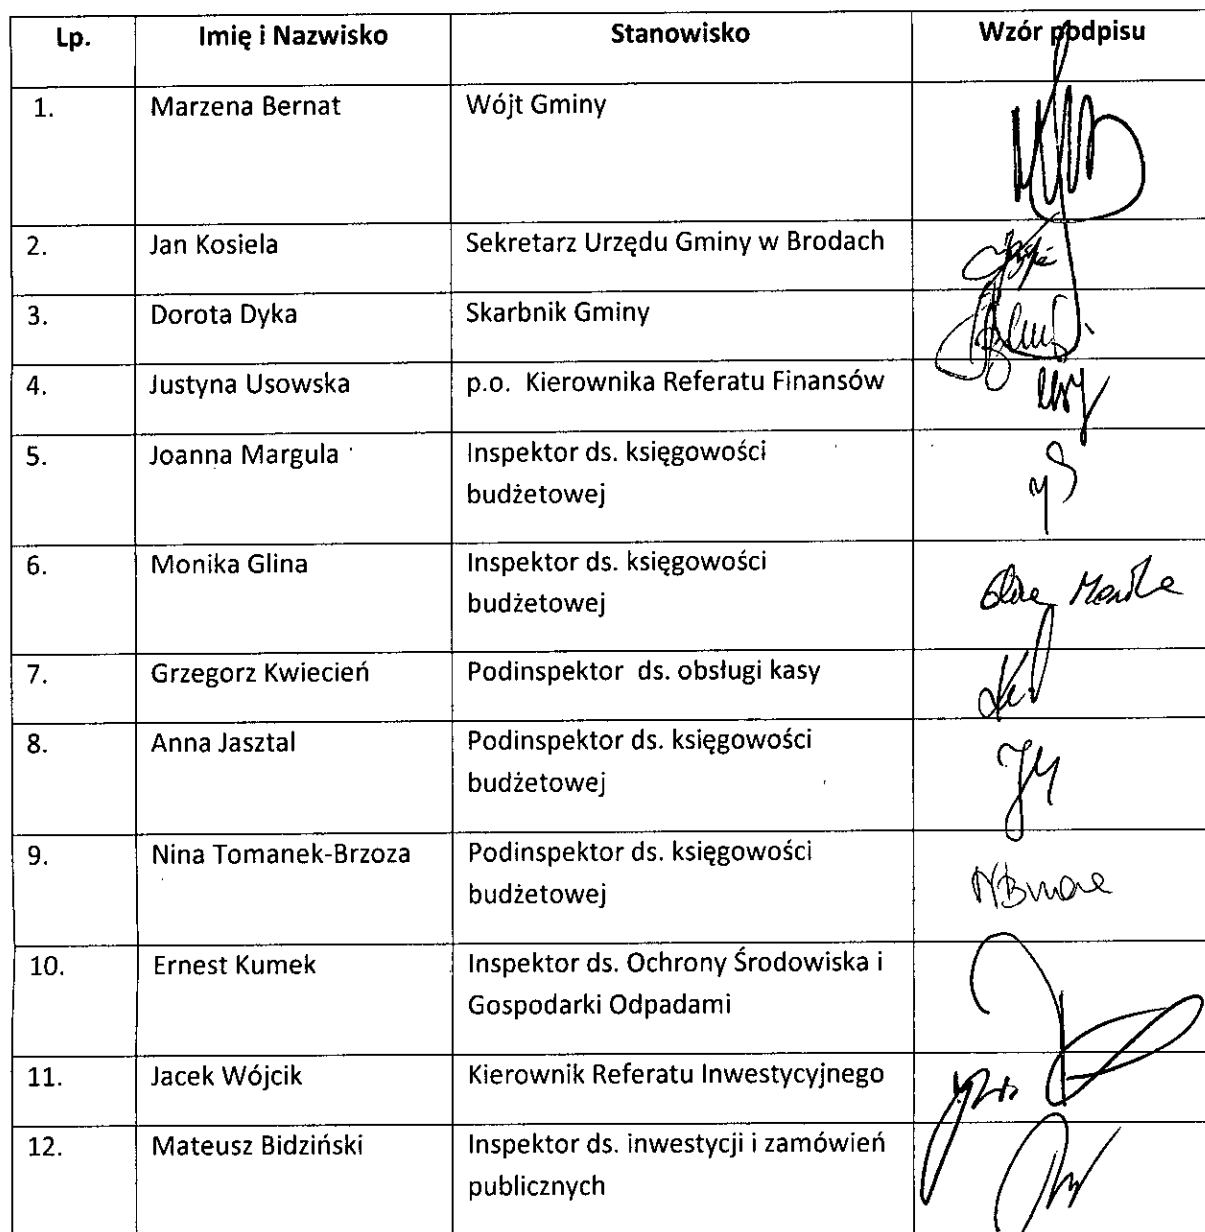 Lp. Imię i Nazwisko Stanowisko Wzór podpisu
1. Marzena Bernat Wójt Gminy
2. Jan Kosiela Sekretarz Urzędu Gminy w Brodach
3. Dorota Dyka Skarbnik Gminy
4. Justyna Usowska p.o. Kierownika Referatu Finansów
5. Joanna Margula Inspektor ds. księgowości
budżetowej
6. Monika Glina Inspektor ds. księgowości
budżetowej
7. Grzegorz Kwiecień Podinspektor ds. obsługi kasy
8. Anna Jasztal Podinspektor ds. księgowości
budżetowej
9. Nina Tomanek-Brzoza Podinspektor ds. księgowości
budżetowej
10. Ernest Kumek Inspektor ds. Ochrony Środowiska i
Gospodarki Odpadami
11. Jacek Wójcik Kierownik Referatu Inwestycyjnego
12. Mateusz Bidziński Inspektor ds. inwestycji i zamówień
publicznych